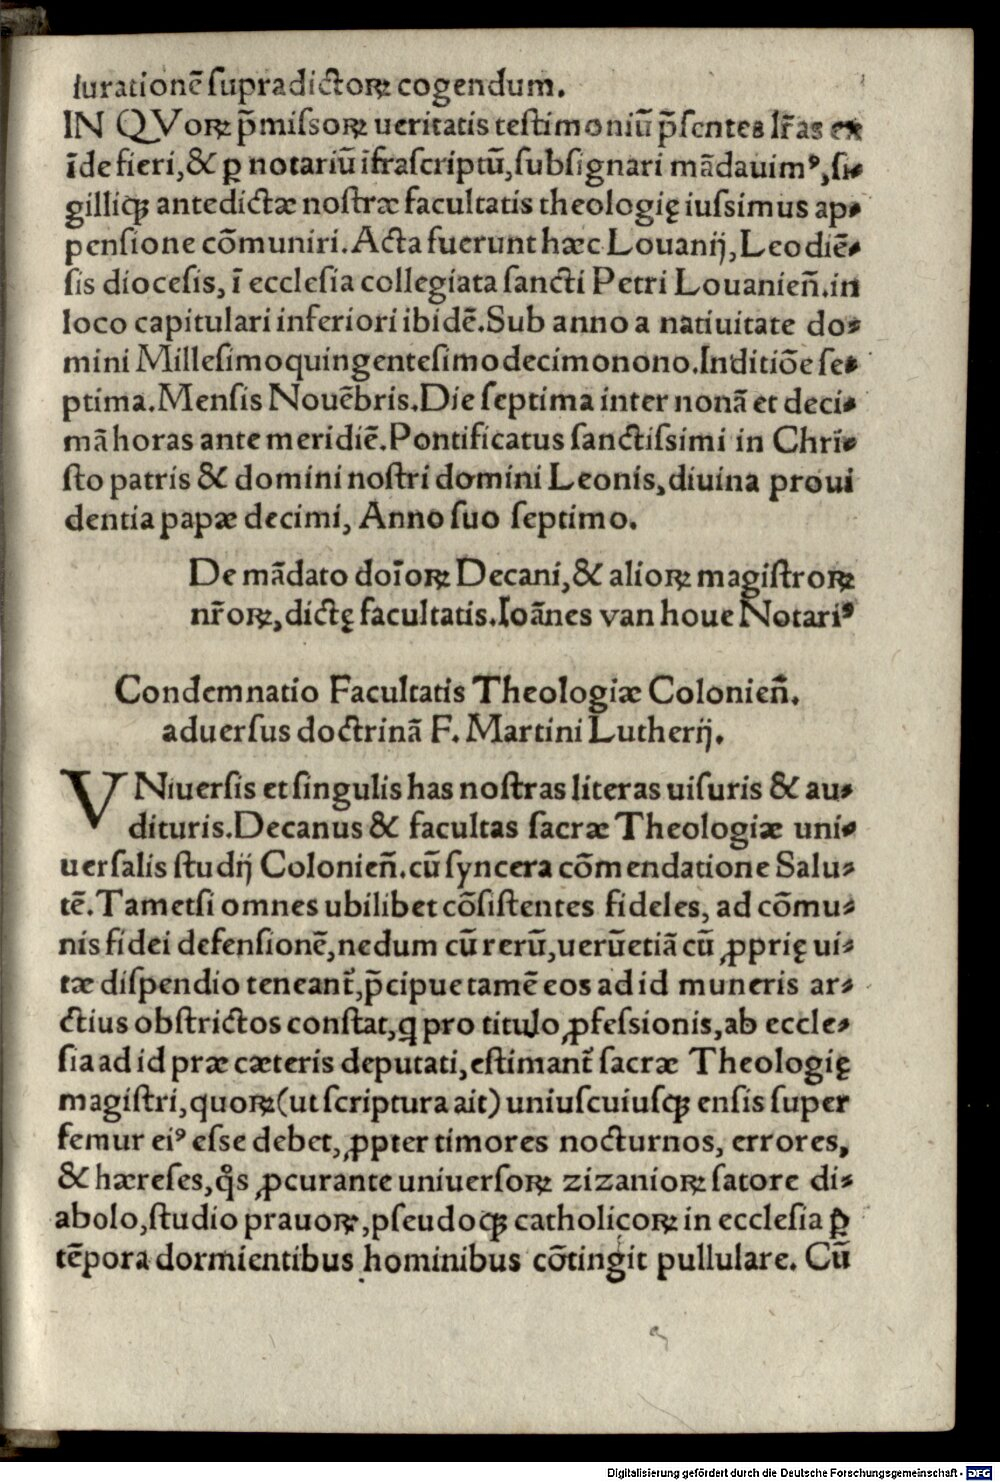 iurationē ſupradictoꝝ cogendum.
IN QVoꝝ p̄miſſoꝝ ueritatis teſtimoniū p̄ſentes lr̄as ex
īde fieri, & ꝑ notariū īfraſcriptū, ſubſignari mādauimꝰ, ſi-
gilliqꝫ antedictæ noſtræ facultatis theologię iuſſimus ap-
penſione cōmuniri. Acta fuerunt hæc Louanij, Leodiē-
ſis diocesis, ī eccleſia collegiata ſancti Petri Louanien̄. in
loco capitulari inferiori ibidē. Sub anno a natiuitate do-
mini Milleſimoquingenteſimodecimonono. Inditiōe ſe-
ptima. Menſis Nouēbris. Die ſeptima inter nonā et deci-
mā horas ante meridiē. Pontificatus ſanctiſſimi in Chri-
ſto patris & domini noſtri domini Leonis, diuina proui
dentia papæ decimi, Anno ſuo ſeptimo.
De mādato doīoꝝ Decani, & alioꝝ magiſtroꝝ
nr̄oꝝ, dictę facultatis. Ioānes van houe Notariꝰ
Condemnatio Facultatis Theologiæ Colonien̄.
aduerſus doctrinā F. Martini Lutherij.
VNiuerſis et ſingulis has noſtras literas uiſuris & au-
dituris. Decanus & facultas ſacræ Theologiæ uni-
uerſalis ſtudij Colonien̄. cū ſyncera cōmendatione Salu-
tē. Tametſi omnes ubilibet cōſiſtentes fideles, ad cōmu-
nis fidei defenſionē, nedum cū rerū, uerūetiā cū ꝓprię ui-
tæ diſpendio teneant᷑, p̄cipue tamē eos ad id muneris ar-
ctius obſtrictos conſtat, ꝗ pro titulo ꝓfeſſionis, ab eccle-
ſia ad id præ cæteris deputati, eſtimant᷑ ſacræ Theologię
magiſtri, quoꝝ (ut ſcriptura ait) uniuſcuiuſqꝫ enſis ſuper
femur eiꝰ eſſe debet, ꝓpter timores nocturnos, errores,
& hæreſes, qͦs ꝓcurante uniuerſoꝝ zizanioꝝ ſatore di-
abolo, ſtudio prauoꝝ, pſeudoqꝫ catholicoꝝ in eccleſia ꝑ
tēpora dormientibus hominibus cōtingit pullulare. Cū
Digitalisierung gefördert durch die Deutsche Forschungsgemeinschaft - DFG